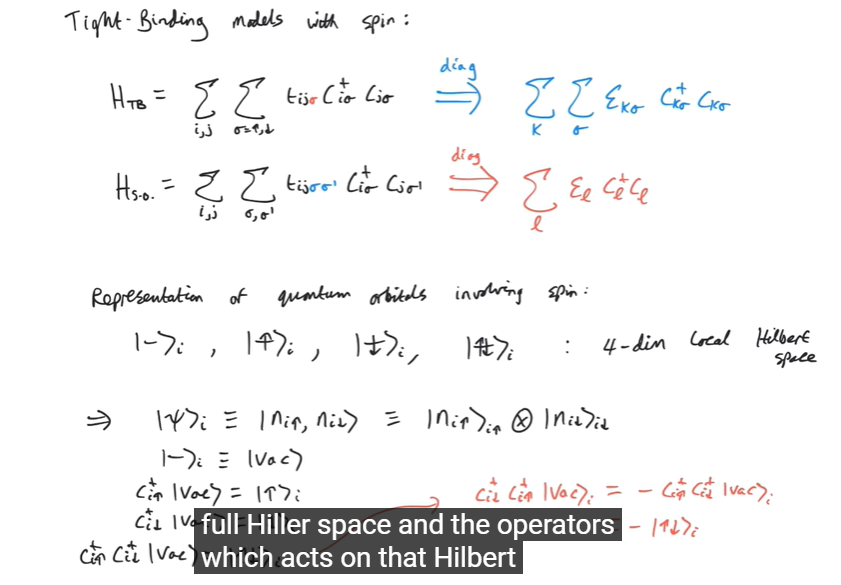 Tight-Binding models with spin:
diag
H_TB = Σ_{i,j} Σ_{σ=↑,↓} t_{ijσ} C†_{iσ} C_{jσ} ⟹ Σ_K Σ_σ ε_{Kσ} C†_{Kσ} C_{Kσ}
diag
H_{S.O.} = Σ_{i,j} Σ_{σ,σ'} t_{ijσσ'} C†_{iσ} C_{jσ'} ⟹ Σ_ℓ ε_ℓ C†_ℓ C_ℓ
Representation of quantum orbitals involving spin:
|−⟩_i , |↑⟩_i , |↓⟩_i, |↑↓⟩_i : 4-dim local Hilbert space
⇒ |ψ⟩_i ≡ |n_{i↑}, n_{i↓}⟩ ≡ |n_{i↑}⟩_{i↑} ⊗ |n_{i↓}⟩_{i↓}
|−⟩_i ≡ |vac⟩
C†_{i↑} |vac⟩ = |↑⟩_i
C†_{i↓} C†_{i↑} |vac⟩_i = − C†_{i↑} C†_{i↓} |vac⟩_i
C†_{i↓} |vac
= − |↑↓⟩_i
C†_{i↑} C†_{i↓} |vac⟩
full Hiller space and the operators
which acts on that Hilbert